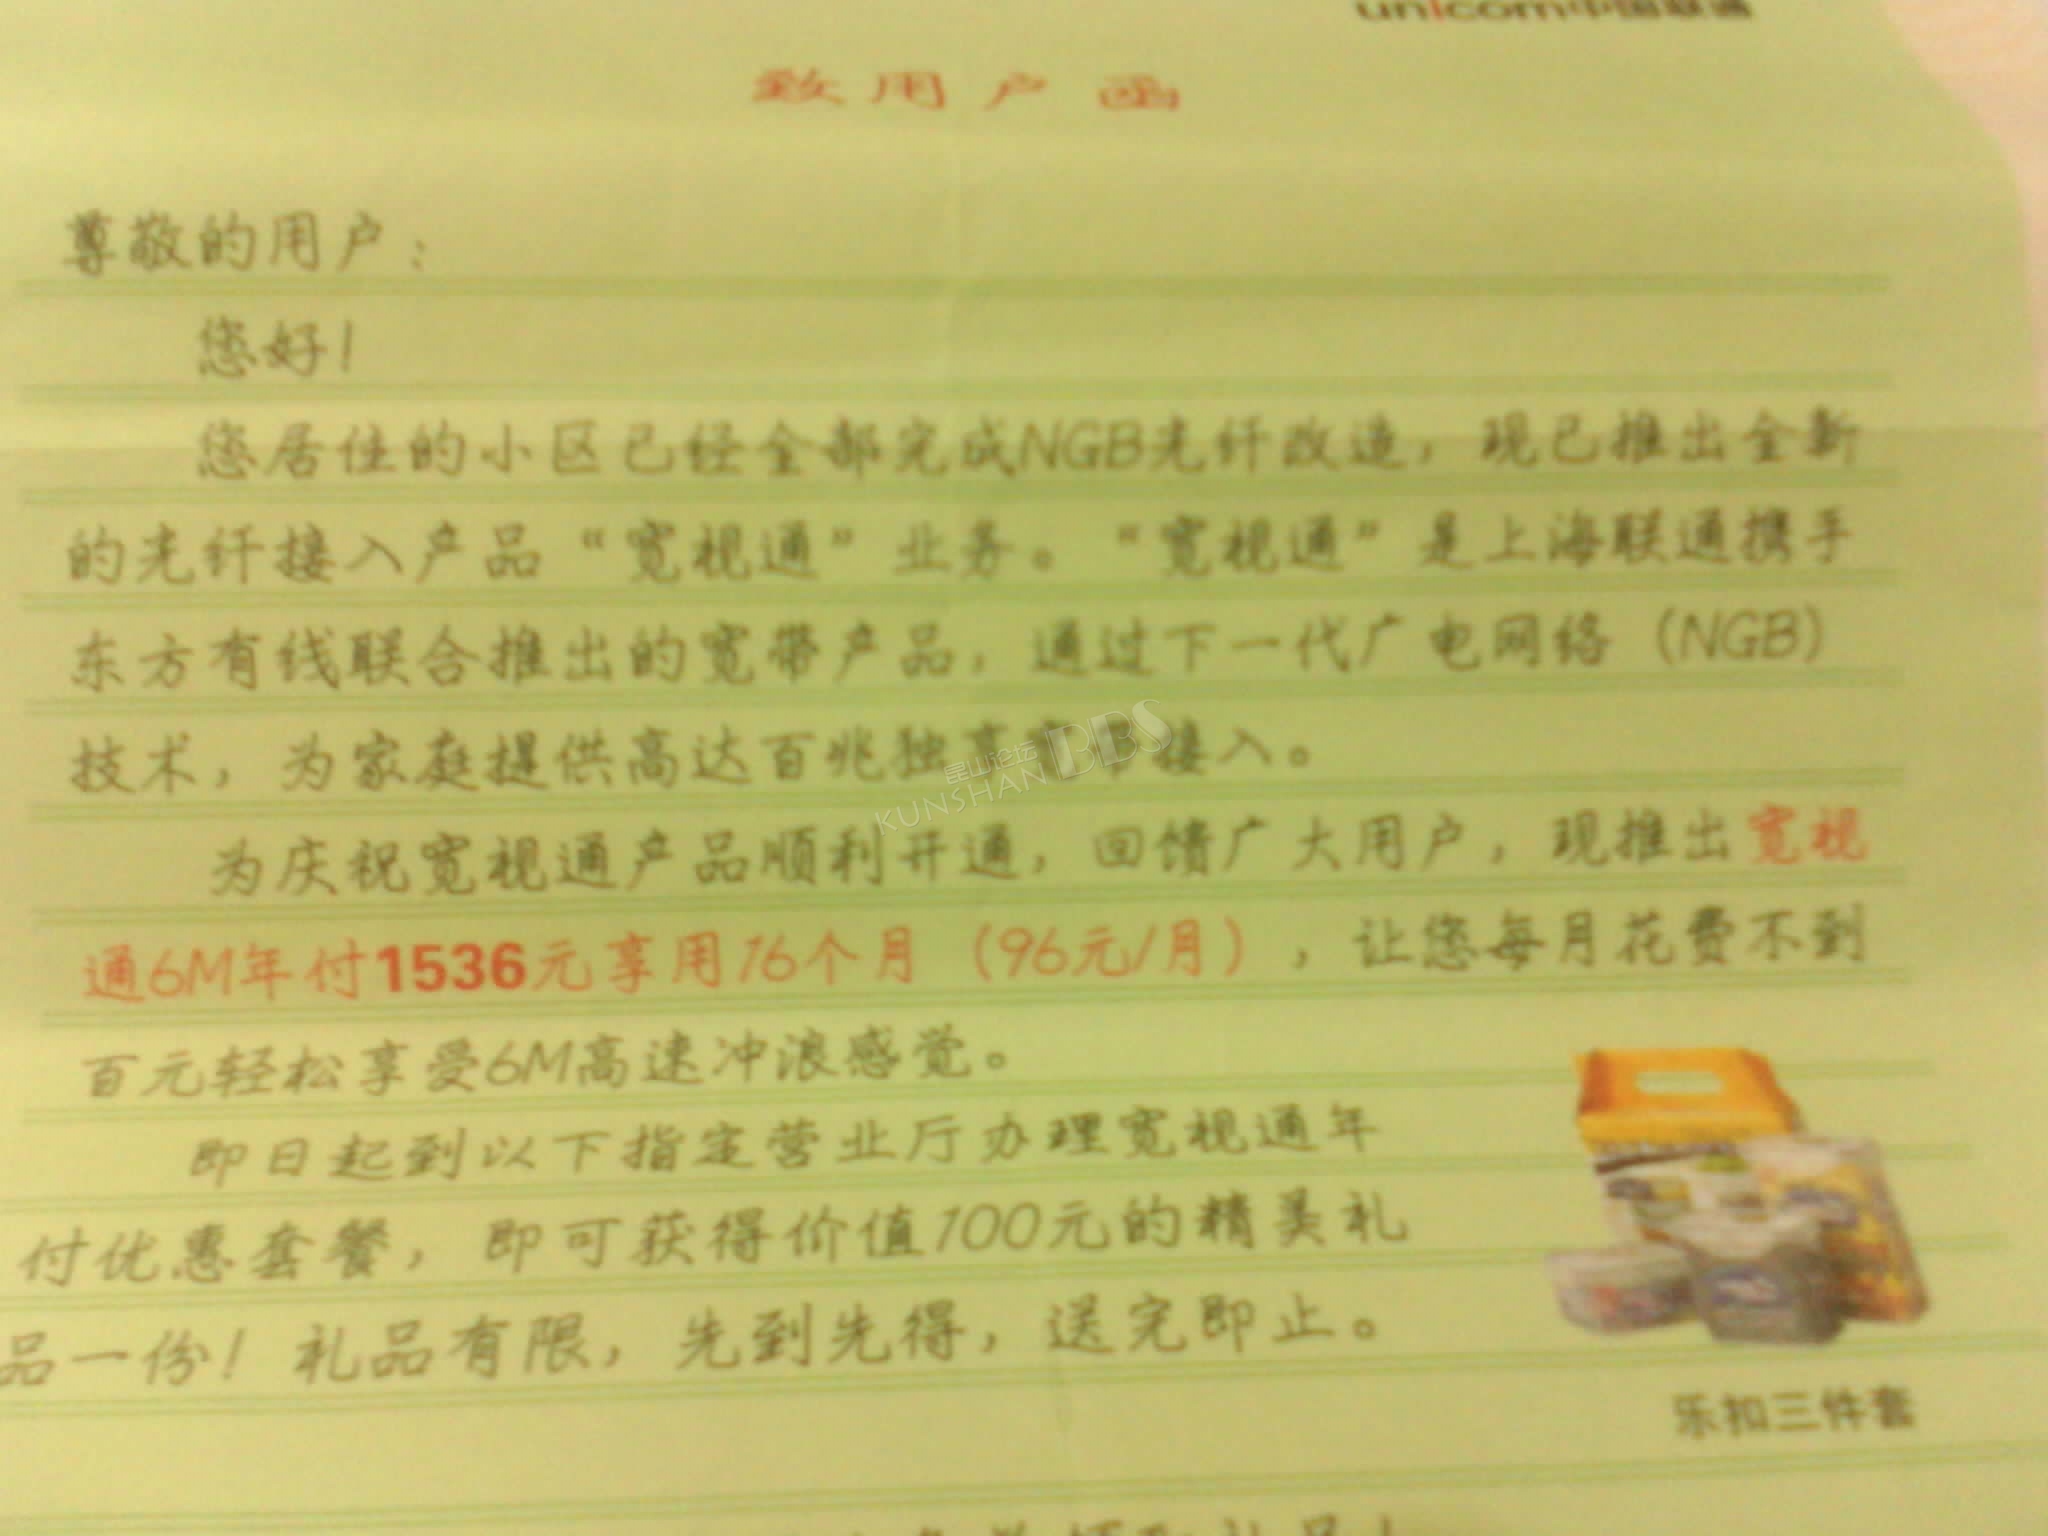 unicom中国联通
致用户函
尊敬的用户：
您好！
您居住的小区已经全部完成NGB光纤改造，现已推出全新
的光纤接入产品“宽视通”业务。“宽视通”是上海联通携手
东方有线联合推出的宽带产品，通过下一代广电网络（NGB）
技术，为家庭提供高达百兆独享宽带接入。
昆山论坛 BBS
KUNSHAN
为庆祝宽视通产品顺利开通，回馈广大用户，现推出宽视
通6M年付1536元享用16个月（96元/月），让您每月花费不到
百元轻松享受6M高速冲浪感觉。
即日起到以下指定营业厅办理宽视通年
付优惠套餐，即可获得价值100元的精美礼
品一份！礼品有限，先到先得，送完即止。
乐扣三件套